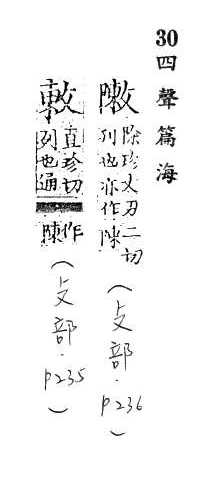 30四聲篇海
敶
除珍丈刃二切
列也亦作陳
(攴部.p236)
直珍切
列也通
作
陳
(攴部.p235)